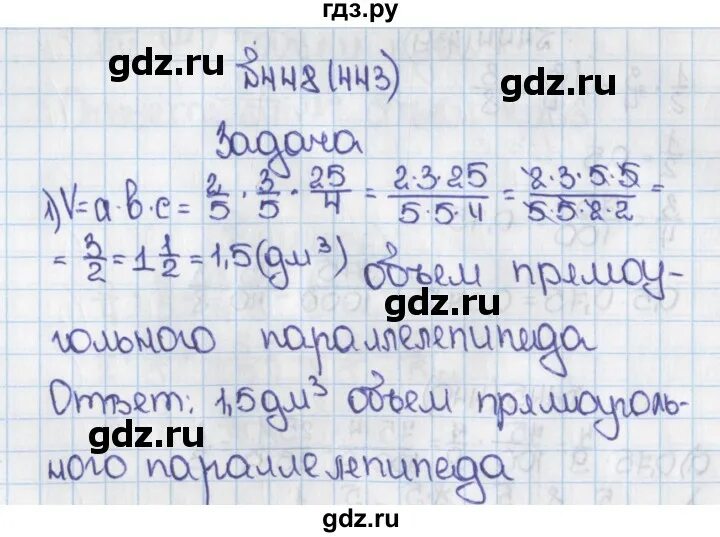 гдз.ру
gdz.ru
№448(443)
gdz.ru
Задача
1) V=a·b·c= 2/5 · 3/5 · 25/4 = 2·3·25/5·5·4 = 2·3·5·5/5·5·2·2 =
= 3/2 = 1 1/2 = 1,5(дм³) объем прямоу-
gdz.ru
гольного параллелепипеда
Ответ: 1,5дм³ объем прямоуголь-
gdz.ru
ного параллелепипеда
gdz.ru